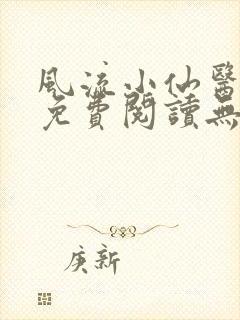 風流小仙醫
免費閱讀無
庚新